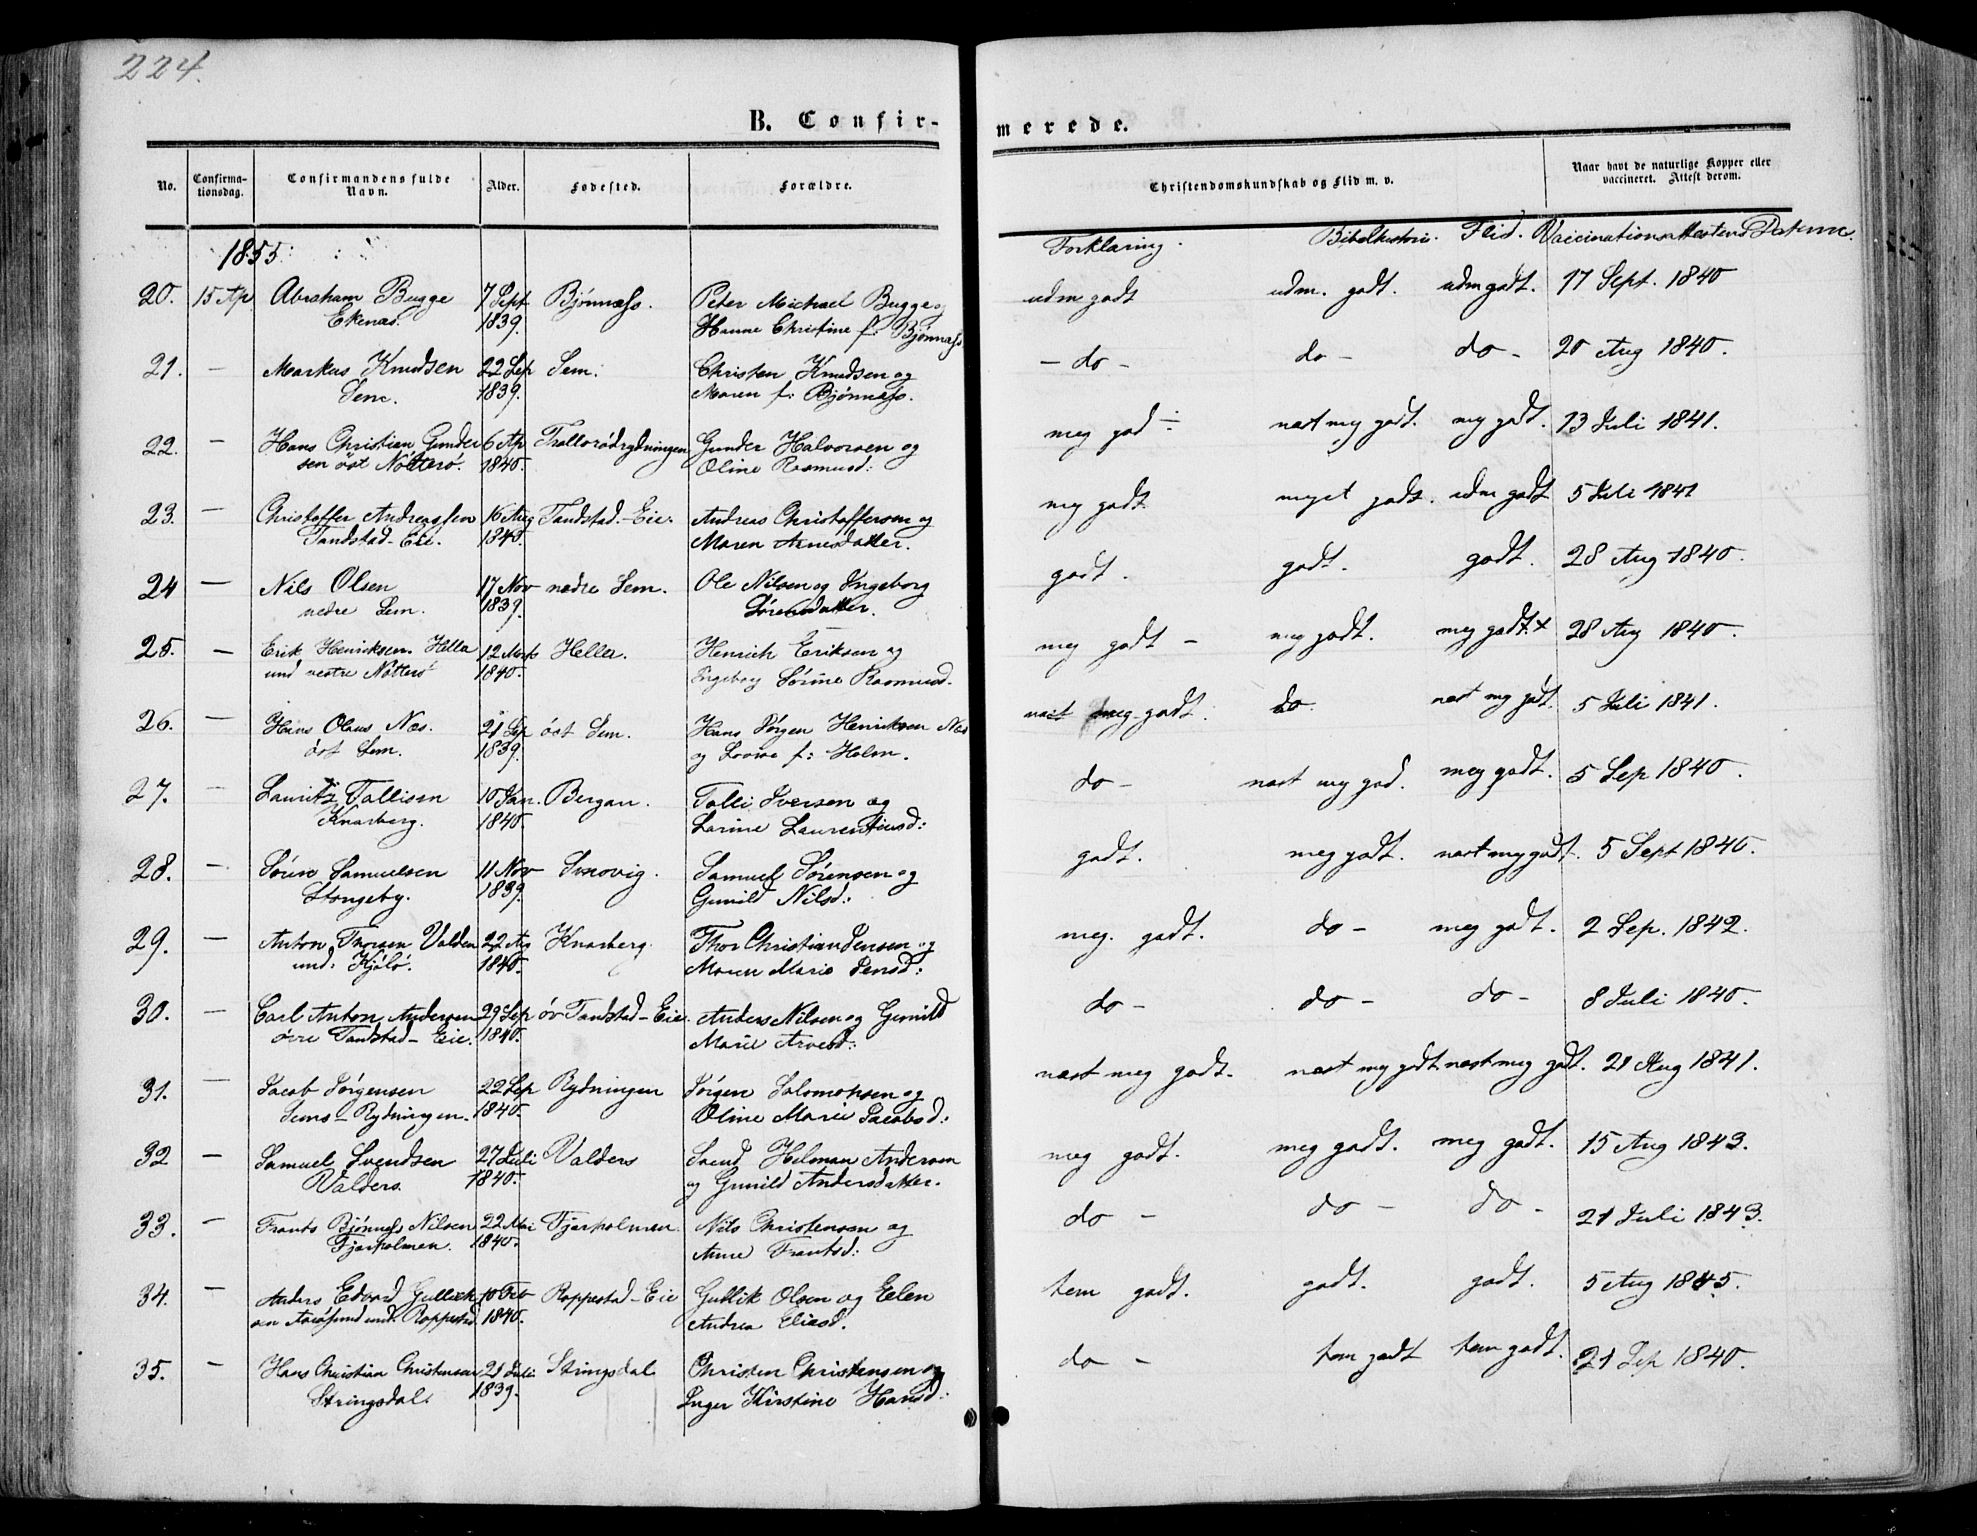 224.
B. Confir-
merede.
No.
Confirma-
tionsdag.
Confirmandens fulde
Navn.
Alder.
Fødested.
Forældre.
Christendomskundskab og Flid m. v.
Naar havt de naturlige Kopper eller
vaccineret. Attest derom.
1855.
Forklaring. Bibelhistorie. Flid. Vaccinationsattestens Datum.
20. 15 Ap Abraham Bugge 7 Sept Bjønness. Peter Michael Bugge og udm godt udm. godt. udm godt. 17 Sept. 1840
Ekenæs. 1839. Hanne Christine f: Bjønness
21. — Markus Knudsen 22 Sep Sem. Christen Knudsen og — do — do — do — 20 Aug 1840.
Sem. 1839. Maren f: Bjønness.
22. — Hans Christian Gunder 6 Ap Trollerødrydningen Gunder Halvorsen og meg god næst mg godt. mg godt. 13 Juli 1841.
sen øst Nøtterø. 1840. Oline Rasmusd:
23. — Christoffer Andreassen 16 Aug Tandstad-Eie. Andreas Christoffersen og mg godt meget godt. udm godt 5 Juli 1841
Tandstad-Eie. 1840. Maren Arnesdatter.
24 — Nils Olsen 17 Nov nedre Sem. Ole Nilsen og Ingeborg godt. godt. godt. 28 Aug 1840.
nedre Sem. 1839. Sørensdatter.
25. — Erik Henriksen Hella 12 Marts Hella. Henrich Eriksen og meg godt — mg godt. meg godt. 28 Aug 1840.
und vestre Nøtterø 1840. Ingeborg Sørine Rasmusd.
26. — Hans Olaus Næs. 21 Sep øst Sem. Hans Jørgen Henriksen Næs næst meg godt. do næst mg godt. 5 Juli 1841.
øst Sem. 1839. og Lovise f: Holm.
27. — Lauritz Tollisen 10 Jan. Bergan. Tolli Iversen og do — næst mg god. meg godt. 5 Sep 1840.
Knarberg. 1840. Larine Laurentiusd:
28. — Sören Samuelsen 11 Nov Samuel Sörensen og godt. meg godt. næst mg godt. 5 Sept 1840.
Stangeby. 1839. Gunild Nilsd:
29. — Anton Thorsen Valden 22 Aug Knarberg. Thor Christian Jensen og meg. godt. do — meg godt. 2 Sep. 1842.
und: Kjøló. 1840. Maren Marie Jensd:
30. — Carl Anton Andersen 29 Sep øv Tandstad-Eie. Anders Nilsen og Gunild do — do — do — 8 Juli 1840.
øvre Tandstad-Eie. 1840. Marie Arvesd:
31. — Jacob Jörgensen 22 Sep Rydningen Jörgen Salomonsen og næst meg godt. næst mg godt næst meg godt. 21 Aug 1841.
Sems-Rydningen. 1840. Oline Marie Jacobsd:
32 — Samuel Svendsen 27 Juli Valders Svend Helman Andersen meg godt. meg godt. meg godt. 15 Aug 1843.
Valders. 1840. og Gunild Andersdatter.
33. — Frants Bjønness Nilsen 22 Mai Fjærholmen. Nils Christensen og do — do — do — 21 Juli 1843.
Fjærholmen. 1840. Anne Frantsd:
34. — Anders Edvard Gullich 10 Feb Roppestad-Eie Gullik Olsen og Eelen tem godt. godt. godt. 5 Aug 1845.
sen und Roppestad 1840. Andrea Eliasd.
35. — Hans Christian Christensen 21 Juli Stringsdal Christen Christensen og do — tem godt tem godt. 21 Sep 1840.
Stringsdal. 1839. Inger Kirstine Hansd: